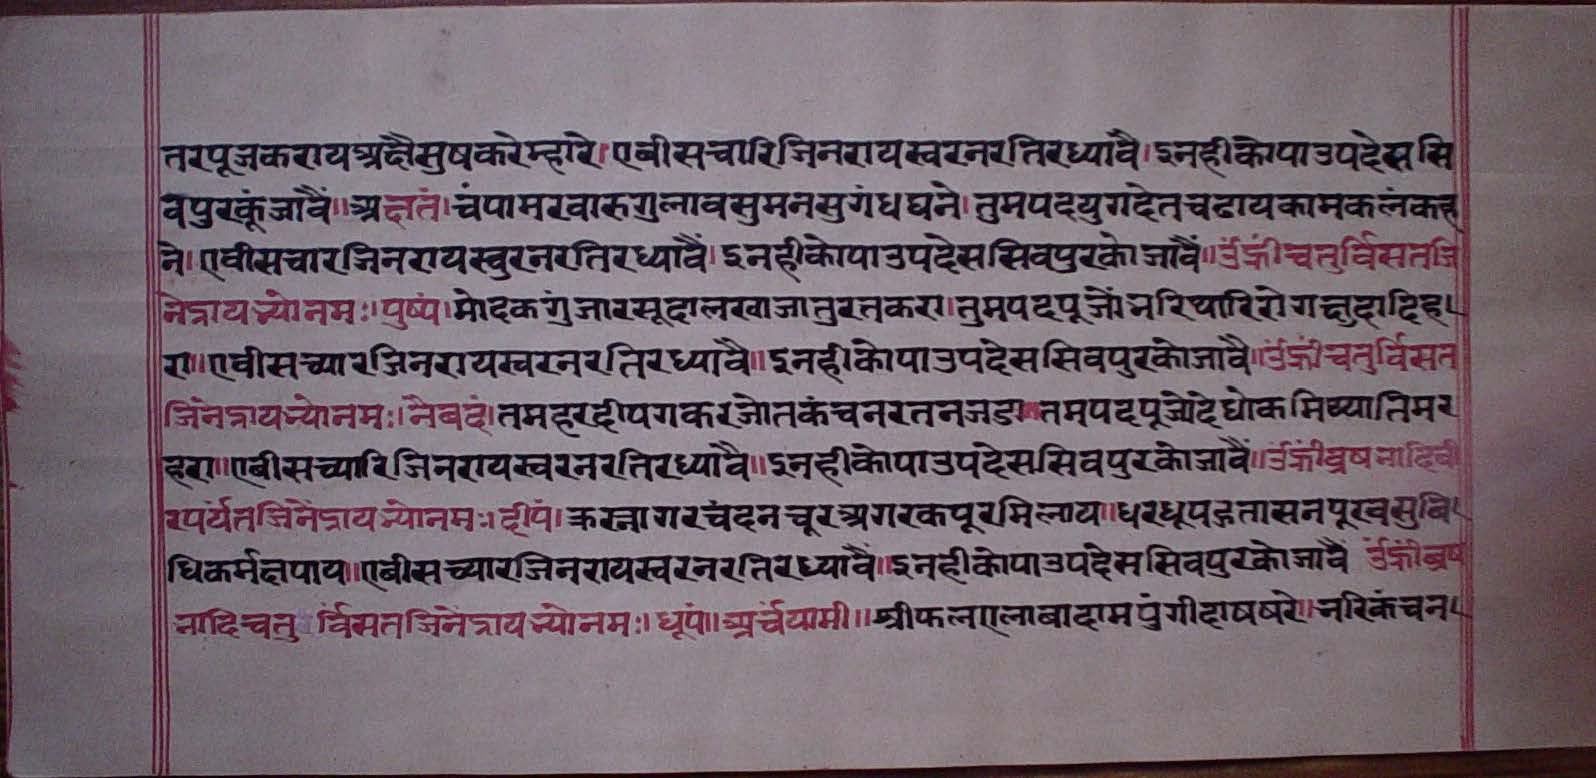 तरपूजकरायअषैसुषकरेम्हारे।एबीसचारिजिनरायस्वरनरतिरध्यावै।इनहीकोपाउपदेससि
वपुरकूंजावैं॥अक्षतं।चंपामरवारुगुलावसुमनसुगंधघने।तुमपदयुगदेतचढायकामकलंकह
ने।एवीसचारजिनरायस्वुरनरतिरध्यावैं।इनहीकोपाउपदेससिवपुरकोजावैं॥उंह्रींचतुर्विसतजि
नेंद्रायभ्योनमः।पुष्पं।मोदकगुंजारसूदालखाजातुरतकरा।तुमपदपूजोंभरिथारिरोगक्षुदादिह
रा॥एवीसच्यारजिनरायस्वरनरतिरध्यावै॥इनहीकोपाउपदेससिवपुरकोजावै॥उंह्रींचतुर्विसत
जिनेंद्रायभ्योनमः।नैबदं।तमहरदीपगकरजोतकंचनरतनजडा॥तमपदपूज्येदेधोकमिथ्यातिमर
हरा॥एबीसच्यारिजिनरायस्वरनरतिरध्यावै॥इनहीकोपाउपदेससिवपुरकोजावैं॥उंह्रींब्रषभादिवी
रपर्यंतजिनेंद्रायभ्योनमः।दीपं।क्रस्नागरचंदनचूरअगरकपूरमिलाय॥धरधूपहुतासनपूरवसुबि
धिकर्मक्षपाय॥एबीसच्यारजिनरायस्वरनरतिरध्यावैं॥इनहीकोपाउपदेससिवपुरकोजावै उंह्रींब्रष
भादिचतुर्विंसतजिनेंद्रायभ्योनमः।धूपं॥अर्चयामी॥श्रीफलएलाबादामपुंगीदाषषरे॥भरिकंचन